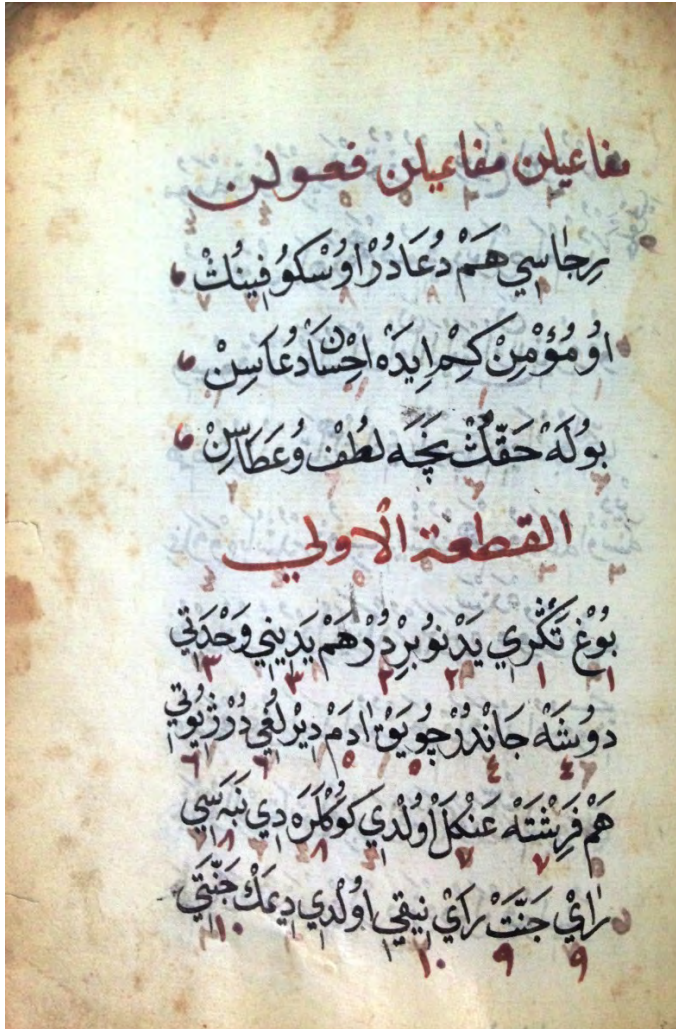 مفاعيلن مفاعيلن فعولن
رِجاسي هَمْ دُعَادُرْ اوُسْكوُفِينُڭْ
اوُ مُؤْمِنْ كِمْ اِيدَهْ اِحْسَانْ دُعَاسِنْ
بوُلَهْ حَقّڭْ نِيجَه لطُفْ وُعَطَاسِنْ
القطعة الاولي
بوُغْ تَڭْري يَدْنوُ بِرْدُرْ هَمْ يَدِيني وَحْدَتي
١ ١ ٢ ٢ ٣ ٣
دوُشَهْ جَانْدُرْ چوُيَقْ اٰدَمْ دِيرْلغُي دُرْ ژِيوُتي
٤ ٤ ٥ ٥ ٦ ٦
هَمْ فَرِشْتَهْ عَنْكَلْ اوُلْدي كوُكْلَرَه دِي نَبَه سي
٧ ٧ ٨ ٨
رٰايْ جَنَّتْ رٰايْ نِيقي اوُلْدي دِيمَكْ جَنَّتي
٩ ٩ ١٠ ١٠